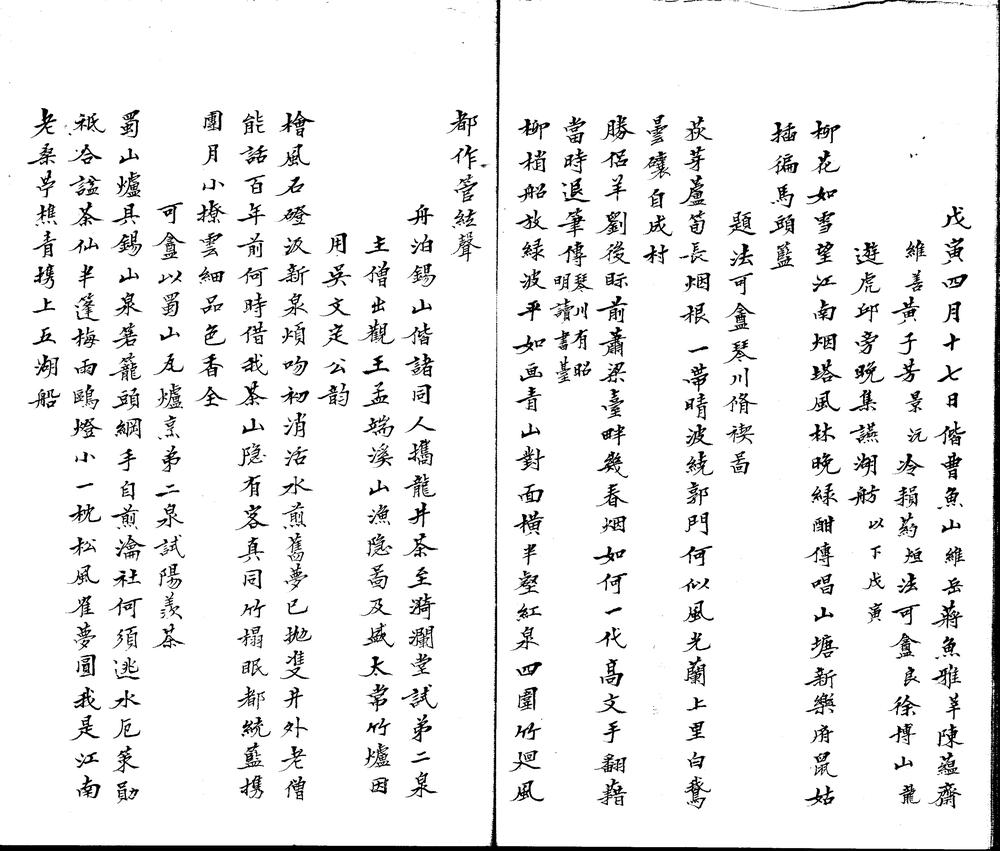 戊寅四月十七日偕曹魚山維岳蔣魚雅莘陳蘊齋
維善黃子芳景沅冷賴葯烜法可盦良徐博山龍
遊虎邱旁晚集讌湖舫以下戊寅
柳花如雪望江南烟塔風林晚綠酣傳唱山塘新樂府鼠姑
插徧馬頭籃
題法可盦琴川脩禊啚
荻芽蘆筍長烟根一帶晴波繞郭門何似風光蘭上里白鵞
曇礳自成村
勝侶羊劉後際前蕭梁臺畔幾春烟如何一代高文手翻藉
當時退筆傳琴川有昭明讀書臺
柳梢船放綠波平如画青山對面橫半壑紅泉四圍竹廻風
都作管絃聲
舟泊錫山偕諸同人攜龍井茶至漪瀾堂試弟二泉
主僧出觀王孟端溪山漁隐啚及盛太常竹爐因
用吳文定公韵
檜風石磴汲新泉煩吻初消活水煎舊夢已抛雙井外老僧
能話百年前何時借我茶山隐有客真同竹榻眠都統藍携
團月小撩雲細品色香全
可盦以蜀山瓦爐烹弟二泉試陽羨茶
蜀山爐具錫山泉箬籠頭綱手自煎瀹社何須逃水厄策勛
祇合諡茶仙半篷梅雨鷗燈小一枕松風雀夢圓我是江南
老桑苧樵青携上五湖船